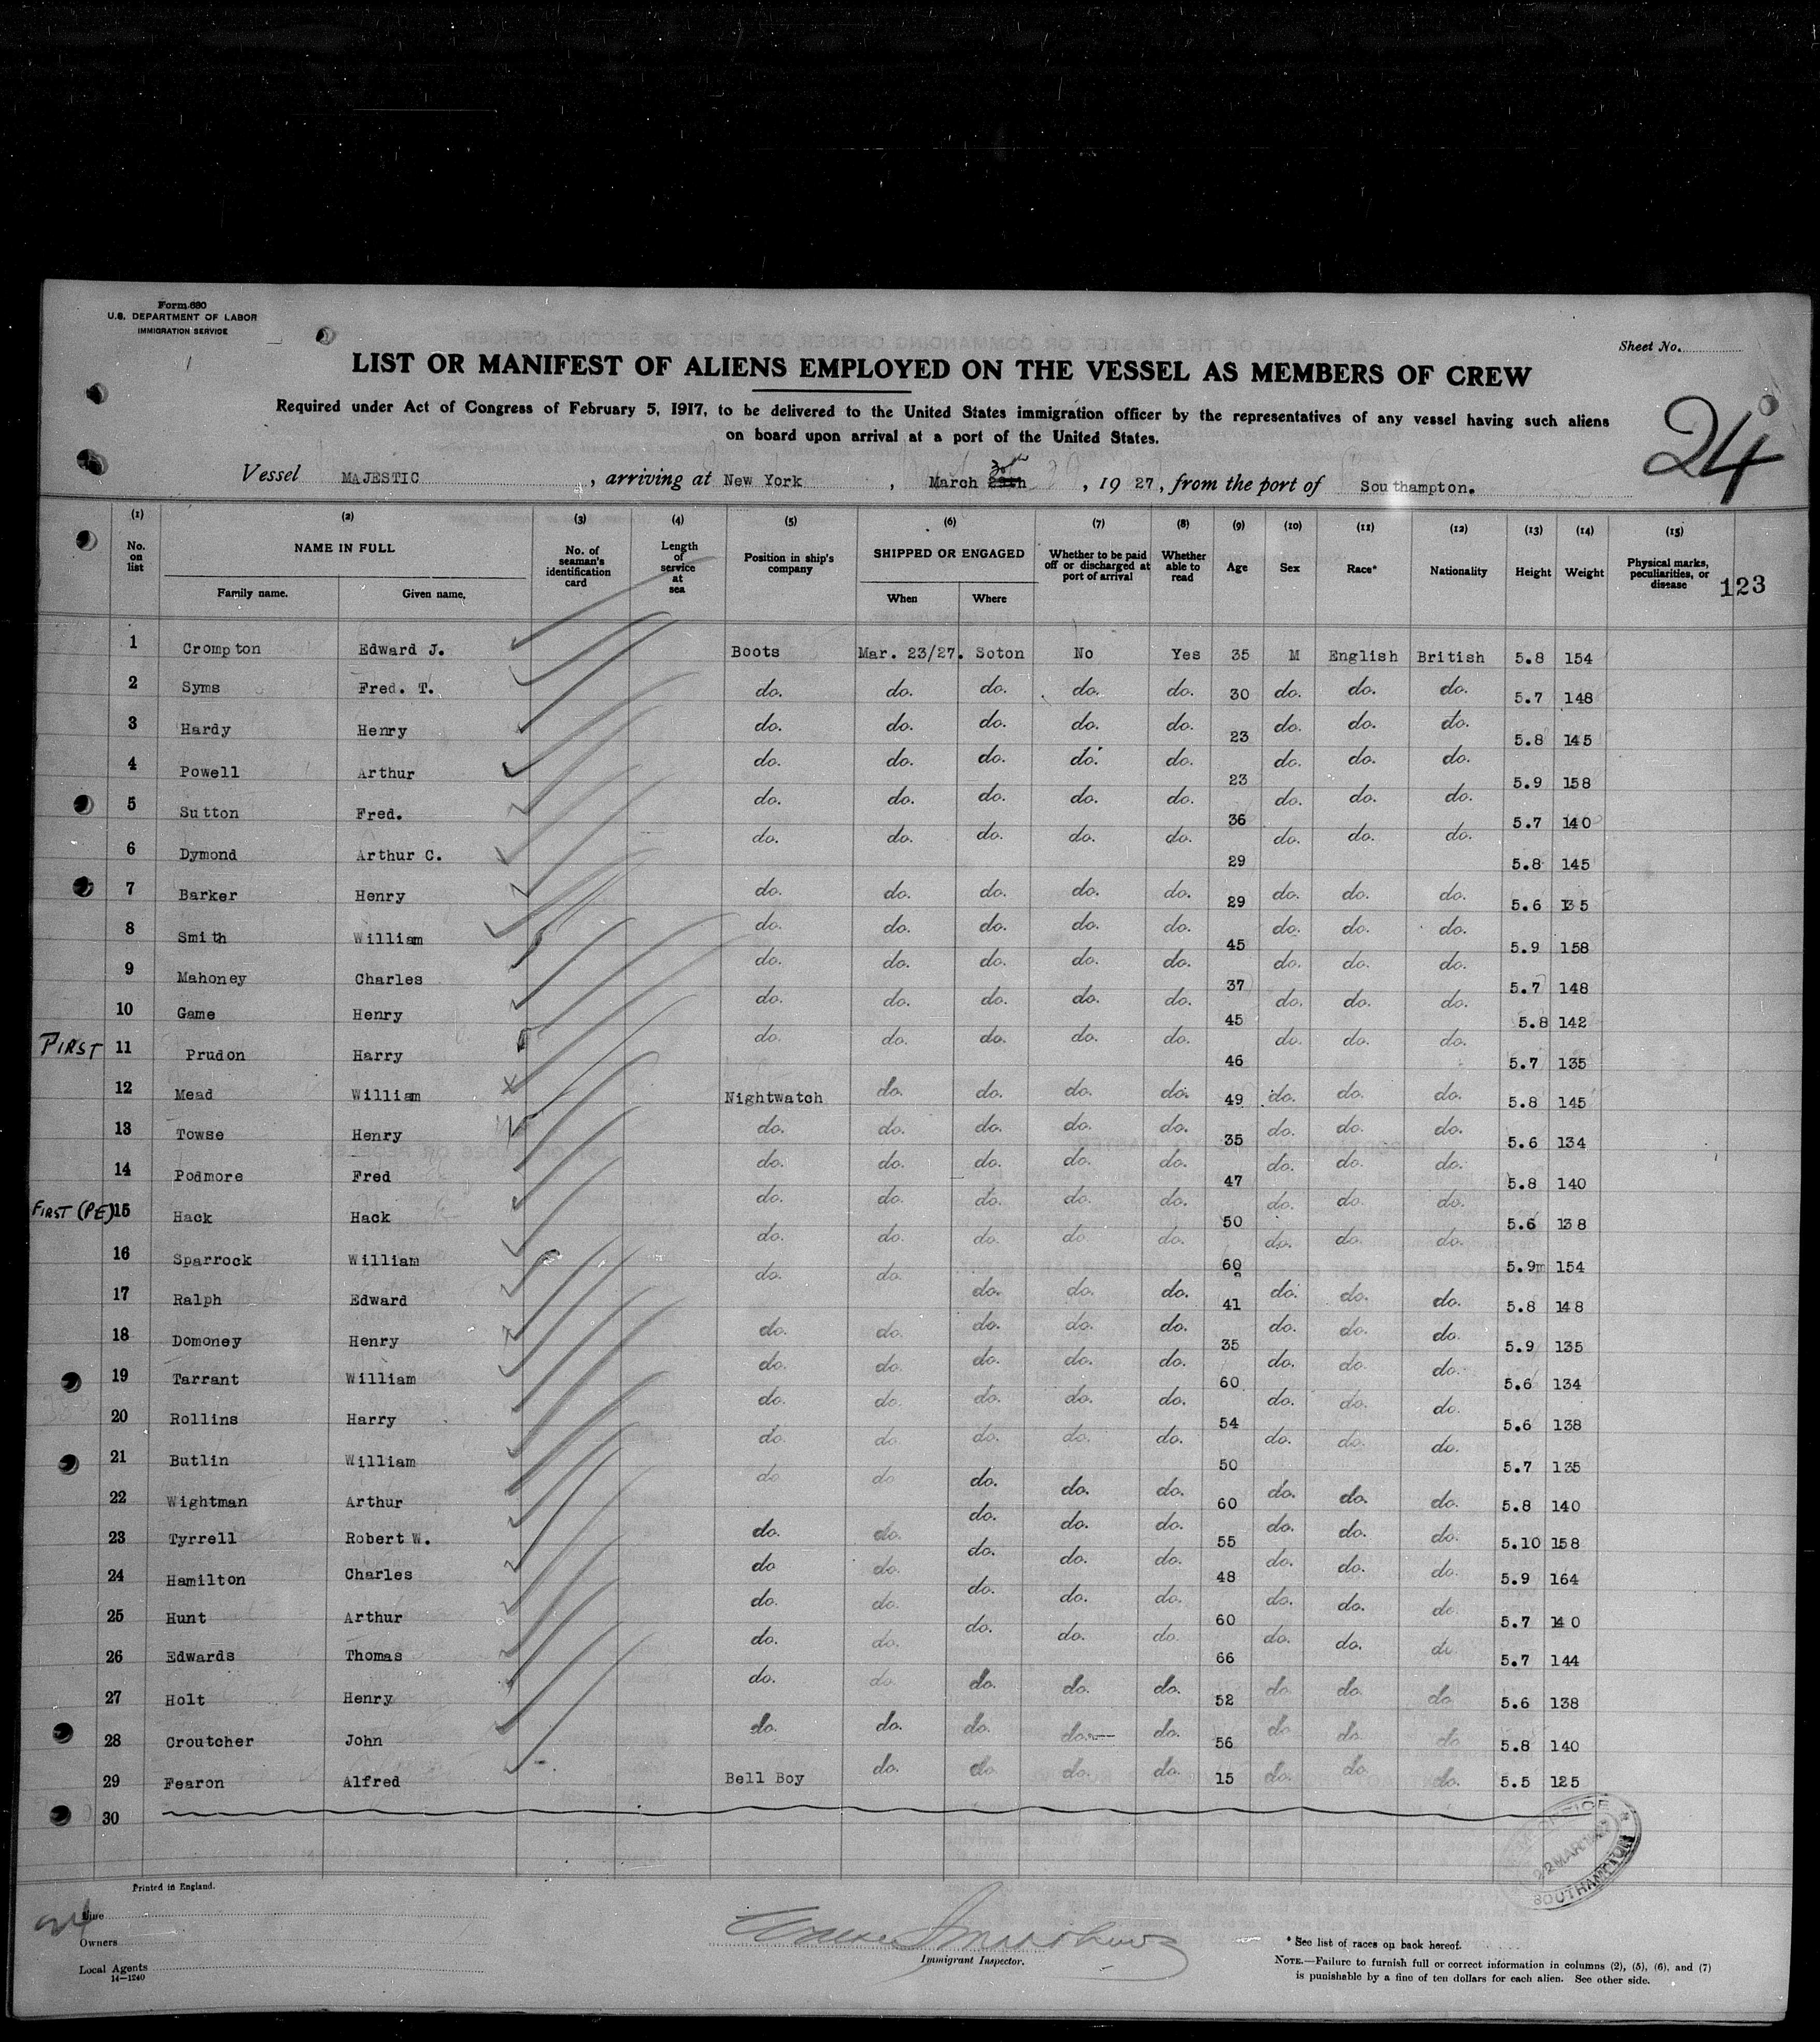 Form 680
U.S. DEPARTMENT OF LABOR
IMMIGRATION SERVICE
Sheet No.
LIST OR MANIFEST OF ALIENS EMPLOYED ON THE VESSEL AS MEMBERS OF CREW
Required under Act of Congress of February 5, 1917, to be delivered to the United States immigration officer by the representatives of any vessel having such aliens
on board upon arrival at a port of the United States.
24
Vessel MAJESTIC, arriving at New York, March 30th 29th, 1927, from the port of Southampton.
(1) (2) (3) (4) (5) (6) (7) (8) (9) (10) (11) (12) (13) (14) (15)
No. on list NAME IN FULL Family name. Given name. No. of seaman's identification card Length of service at sea Position in ship's company SHIPPED OR ENGAGED When Where Whether to be paid off or discharged at port of arrival Whether able to read Age Sex Race* Nationality Height Weight Physical marks, peculiarities, or disease 123
1 Crompton Edward J. Boots Mar. 23/27. Soton No Yes 35 M English British 5.8 154
2 Syms Fred. T. do. do. do. do. do. 30 do. do. do. 5.7 148
3 Hardy Henry do. do. do. do. do. 23 do. do. do. 5.8 145
4 Powell Arthur do. do. do. do. do. 23 do. do. do. 5.9 158
5 Sutton Fred. do. do. do. do. do. 36 do. do. do. 5.7 140
6 Dymond Arthur C. do. do. do. do. do. 29 do. do. do. 5.8 145
7 Barker Henry do. do. do. do. do. 29 do. do. do. 5.6 135
8 Smith William do. do. do. do. do. 45 do. do. do. 5.9 158
9 Mahoney Charles do. do. do. do. do. 37 do. do. do. 5.7 148
10 Game Henry do. do. do. do. do. 45 do. do. do. 5.8 142
FIRST 11 Prudon Harry do. do. do. do. do. 46 do. do. do. 5.7 135
12 Mead William Nightwatch do. do. do. do. 49 do. do. do. 5.8 145
13 Towse Henry do. do. do. do. do. 35 do. do. do. 5.6 134
14 Podmore Fred do. do. do. do. do. 47 do. do. do. 5.8 140
FIRST (PE) 15 Hack Hack do. do. do. do. do. 50 do. do. do. 5.6 138
16 Sparrock William do. do. do. do. do. 60 do. do. do. 5.9m 154
17 Ralph Edward do. do. do. do. do. 41 do. do. do. 5.8 148
18 Domoney Henry do. do. do. do. do. 35 do. do. do. 5.9 135
19 Tarrant William do. do. do. do. do. 60 do. do. do. 5.6 134
20 Rollins Harry do. do. do. do. do. 54 do. do. do. 5.6 138
21 Butlin William do. do. do. do. do. 50 do. do. do. 5.7 135
22 Wightman Arthur do do do. do. do. 60 do. do. do. 5.8 140
23 Tyrrell Robert W. do. do. do. do. do. 55 do. do. do. 5.10 158
24 Hamilton Charles do do. do. do. do. 48 do. do. do. 5.9 164
25 Hunt Arthur do. do. do. do. do. 60 do. do. do 5.7 140
26 Edwards Thomas do. do. do. do. do. 66 do. do. do 5.7 144
27 Holt Henry do. do. do. do. do. 52 do. do. do 5.6 138
28 Croutcher John do. do. do. do. do. 56 do do. do 5.8 140
29 Fearon Alfred Bell Boy do. do. do. do. 15 do. do. do. 5.5 125
30
22 MAR 1927
SOUTHAMPTON
Printed in England.
24
Line
Owners
Local Agents
14—1240
Immigrant Inspector.
* See list of races on back hereof.
NOTE.—Failure to furnish full or correct information in columns (2), (5), (6), and (7)
is punishable by a fine of ten dollars for each alien. See other side.